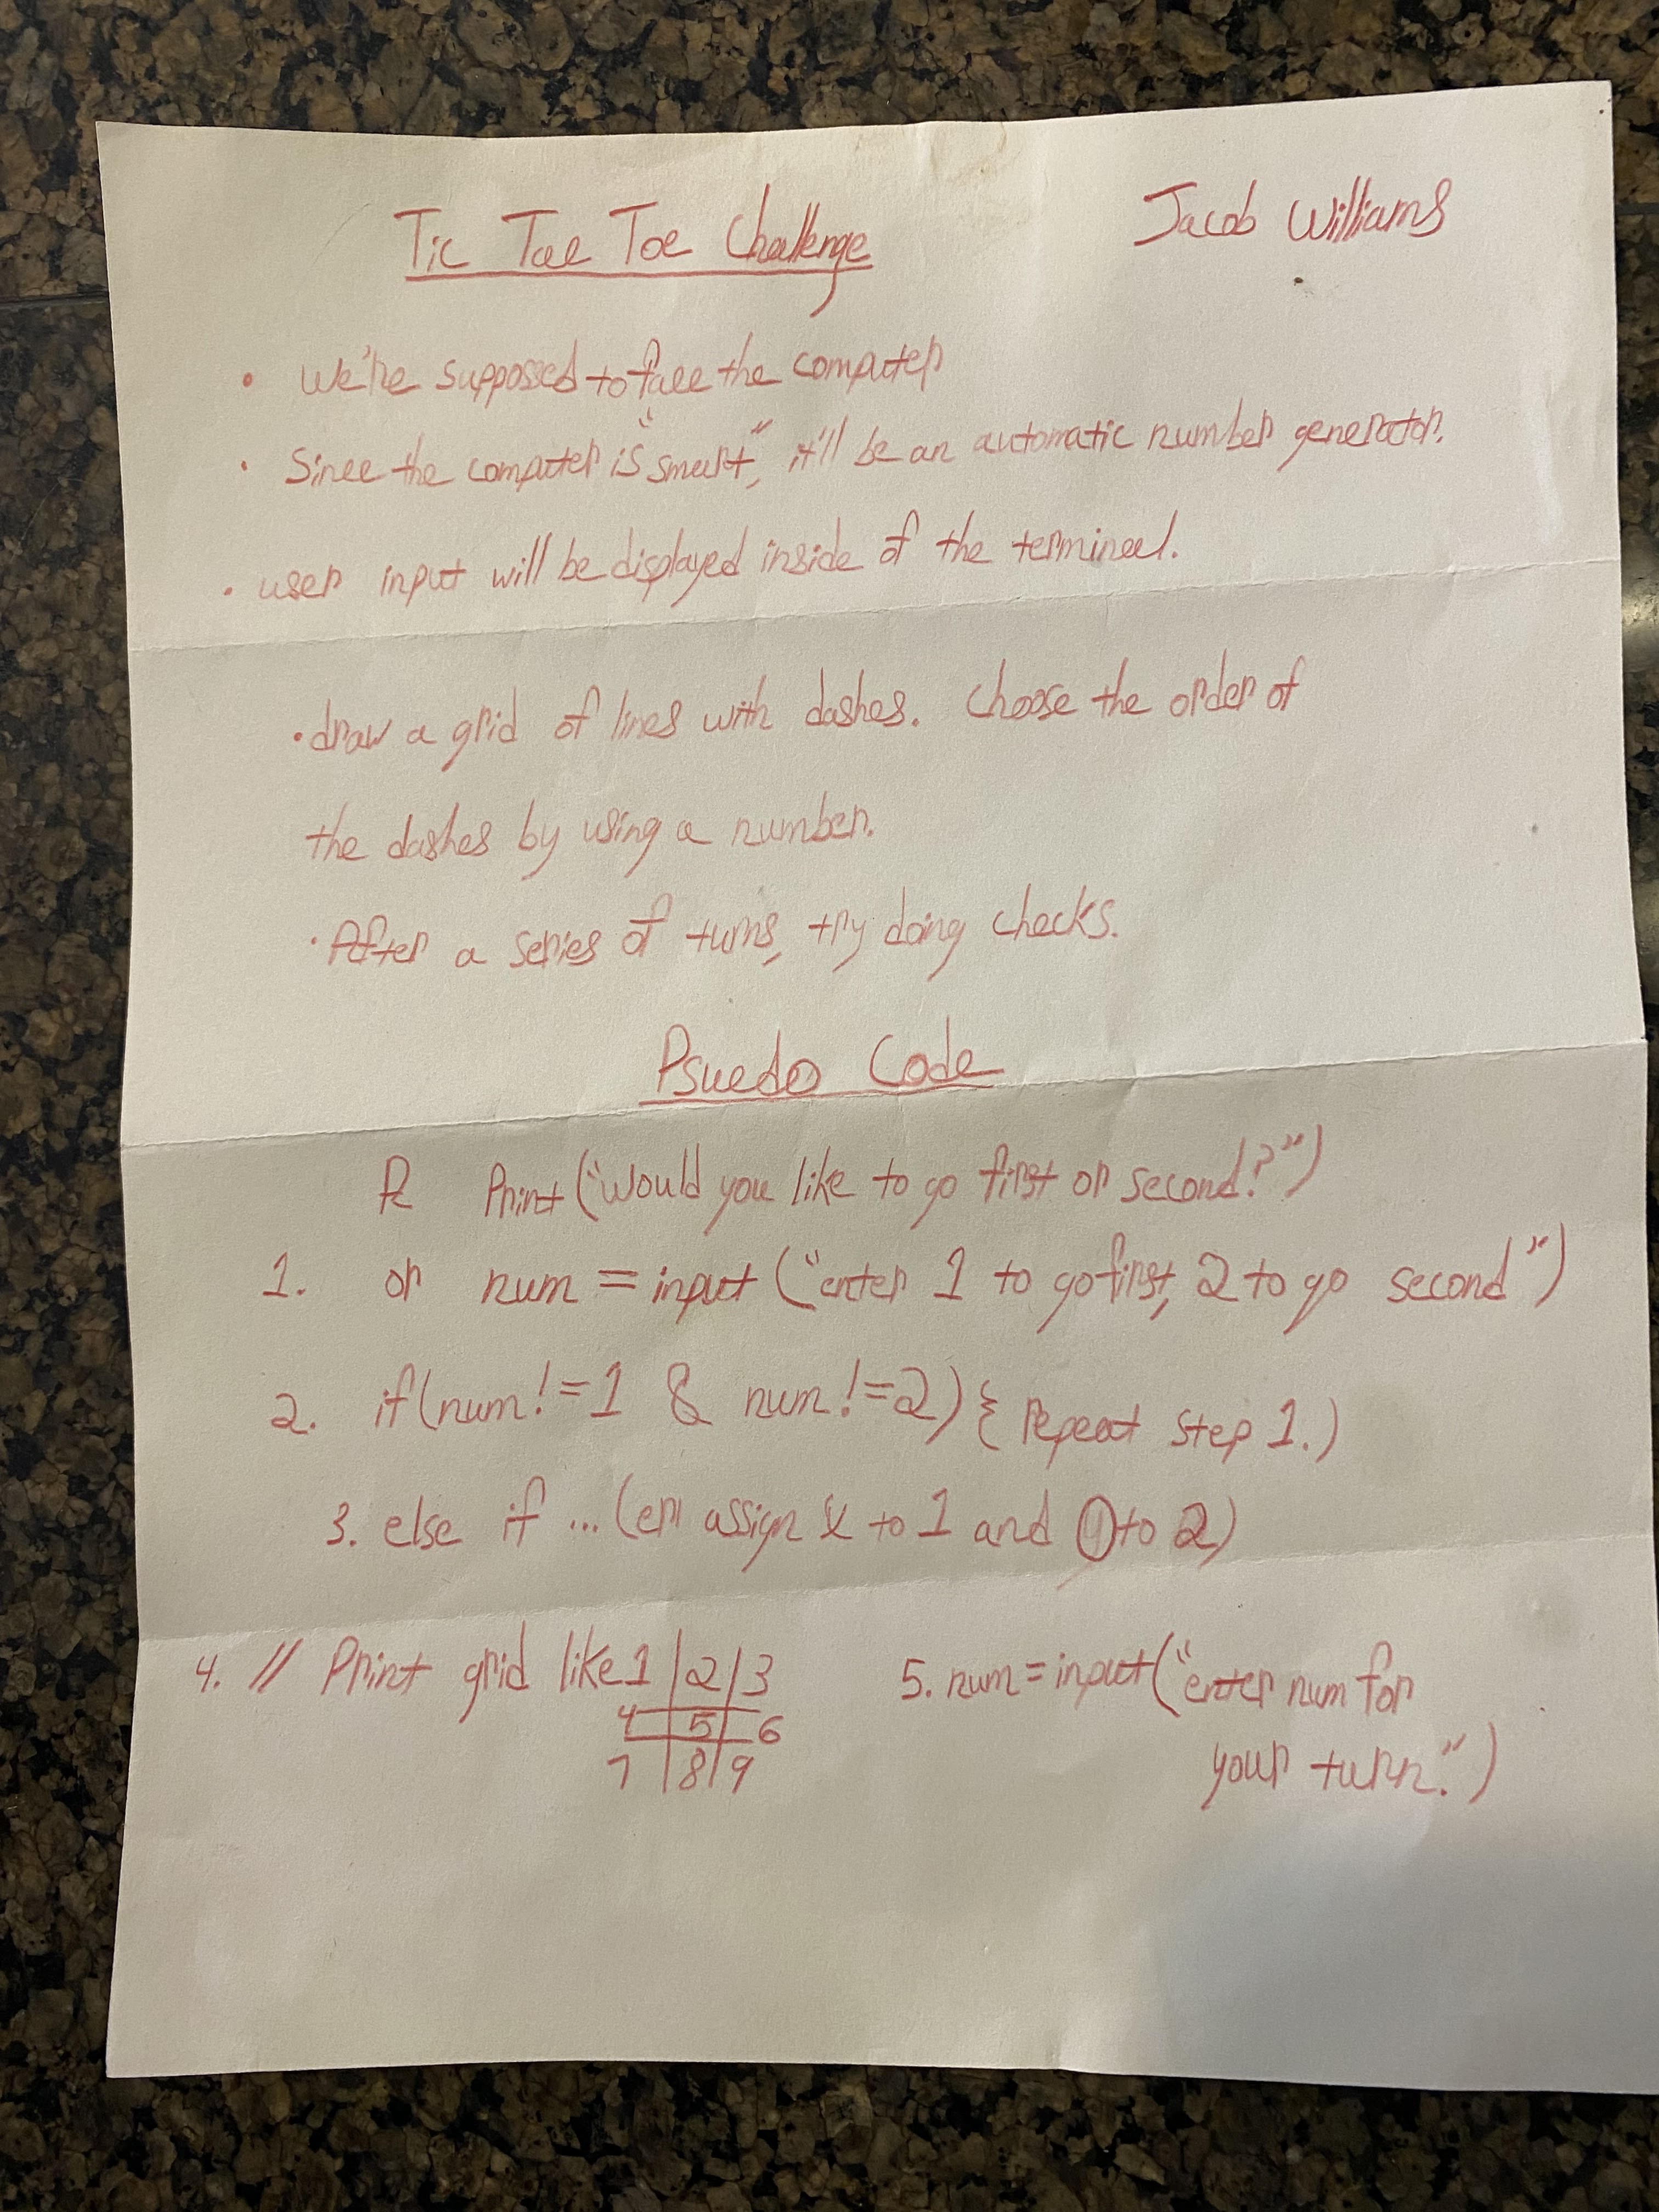 Tic Tac Toe Challenge
Jacob Williams
• We're supposed to face the computer
• Since the computer is "smart", it'll be an automatic number generator.
• user input will be displayed inside of the terminal.
• draw a grid of lines with dashes. Choose the order of
the dashes by using a number.
• After a series of turns, try doing checks.
Psuedo Code
Print("Would you like to go first or second?")
1. or num = input ("enter 1 to go first, 2 to go second")
2. if(num!=1 & num!=2){ repeat step 1.)
3. else if ... ( assign X to 1 and O to 2)
4. // Print grid like 1|2|3
4|5|6
7|8|9
5. num = input("enter num for
your turn.")